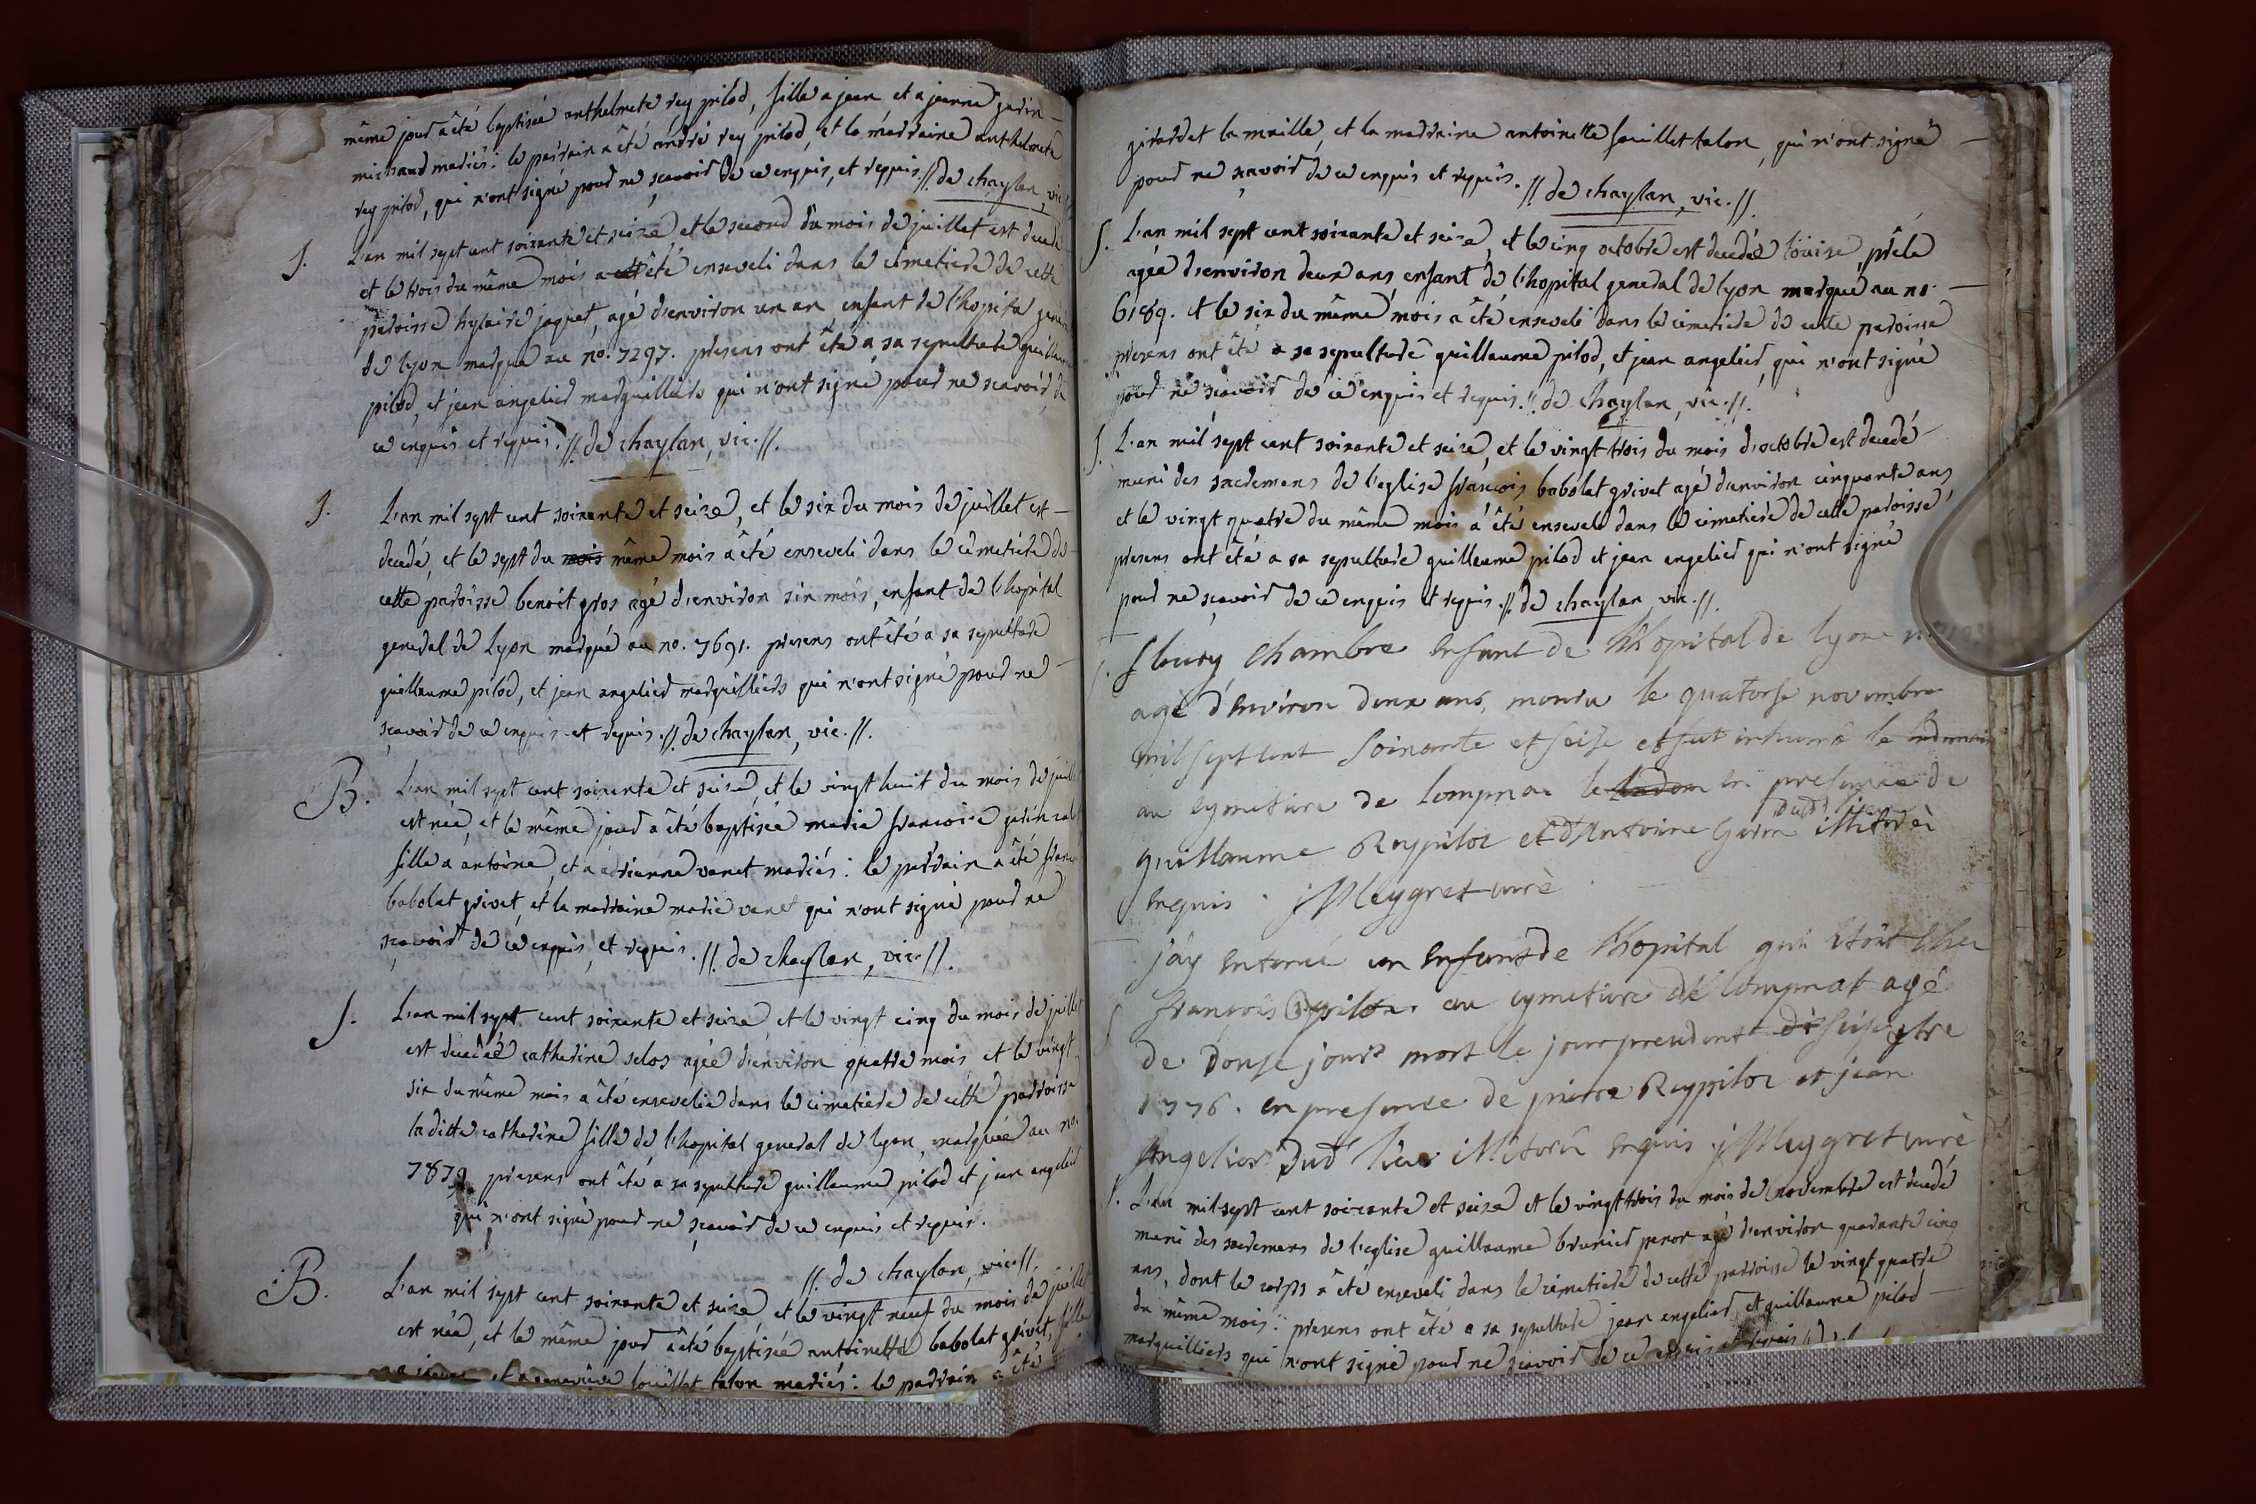 même jour a êté baptisée anthelmete rey pilod, fille a jean et a jeanne gurin
michaud mariés: le parrain a êté andré rey pilod, et la marraine anthelmete
rey pilod, qui n'ont signé pour ne sçavoir de ce enquis, et requis. //. de chaylan, vic.
S. L'an mil sept cent soixante et seize, et le second du mois de juillet est decedé
et le trois du même mois a êté enseveli dans le cimetiere de cette
paroisse hylaire jaquet, agé d'environ un an, enfant de l'hopita general
de lyon marqué au no. 7297. presens ont êté a sa sepulture guillaume
pilod, et jean angelier marguilliers qui n'ont signé pour ne scavoir, de
ce enquis et requis. //. de chaylan, vic. //.
S. L'an mil sept cent soixante et seize, et le six du mois de juillet est
decedé, et le sept du mois même mois a êté enseveli dans le cimetiere de
cette paroisse benoit gros agé d'environ six mois, enfant de l'hopital
general de Lyon marqué au no. 7691. presens ont êté a sa sepulture
guillaume pilod, et jean angelier marguilliers qui n'ont signé pour ne
sçavoir de ce enquis et requis. //. de chaylan, vic. //.
B. L'an mil sept cent soixante et seize, et le vingt huit du mois de juillet
est née, et le même jour a êté baptisée marie francoise
fille a antoine, et a adrienne vanet mariés: le parrain a êté
babolat grivet, et la marraine marie vanet qui n'ont signé pour ne
sçavoir de ce enquis, et requis. //. de chaylan, vic. //.
S. L'an mil sept cent soixante et seize et le vingt cinq du mois de juillet
est decedeé catherine selos agée d'environ quatre mois, et le vingt
six du même mois a êté ensevelie dans le cimetiere de cette parroisse
la ditte catherine fille de l'hopital general de lyon, marquée au no.
7879. presens ont êté a sa sepulture guillaume pilod et jean angelier
qui n'ont signé pour ne sçavoir de ce enquis et requis.
//. de chaylan, vic. //.
B. L'an mil sept cent soixante et seize, et le vingt neuf du mois de juillet
est née, et le même jour a êté baptisée antoinette babolat grivet, fille
et a genevieve fouillet talon mariés: le parrain a êté
girardet la maille, et la marraine antoinette fouillet talon, qui n'ont signé
pour ne sçavoir de ce enquis et requis. //. de chaylan, vic. //.
S. L'an mil sept cent soixante et seize, et le cinq octobre est decedée loüise prêle
agée d'environ deux ans enfant de l'hopital general de lyon marqué au no.
6189. et le six du même mois a êté enseveli dans le cimetiere de cette paroisse
presens ont êté a sa sepulture guillaume pilod, et jean angelier, qui n'ont signé
pour ne scavoir de ce enquis et requis. //. de chaylan, vic. //.
S. L'an mil sept cent soixante et seize, et le vingt trois du mois d'octobre est decedé
muni des sacremens de l'eglise françois babolat grivet agé d'environ cinquante ans
et le vingt quatre du même mois a êté enseveli dans le cimetiere de cette paroisse
presens ont êté a sa sepulture guillaume pilod et jean angelier qui n'ont signé
pour ne sçavoir de ce enquis et requis. //. de chaylan, vic. //.
fleury Chambre enfant de l'hopital de lyon
agé d'environ deux ans, mouru le quatorse novembre
mil sept cent soixante et seise et fut inhumé le lendemain
au cymetiere de lompnas le en presence de
guillaume Reypilor et d'Antoine Gurin illiterés
Enquis. jMeygret curè
S. j'ay Enterré un Enfant de l'hopital qui Etoit Chez
françois au cymetiere de lompnat agé
de Donse jours mort le jour precedent
1776. en presence de pierre Reypilor et jean
Angelier illiterés Enquis jMeygret curè
S. L'an mil sept cent soixante et seize et le vingt trois du mois de novembre est decedé
muni des sacremens de l'eglise guillaume brunier agé d'environ quarante cinq
ans, dont le corps a êté enseveli dans le cimetiere de cette parroisse le vingt quatre
du même mois: presens ont êté a sa sepulture jean angelier, et guillaume pilod
marguilliers qui n'ont signé pour ne scavoir de ce enquis et requis